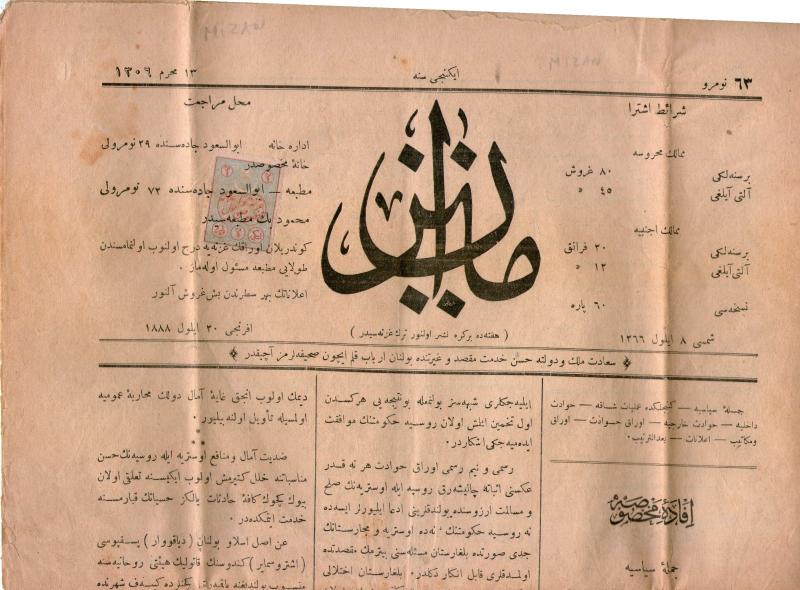 نومرو ٦٣
ایکنجی سنه
١٣ محرم ١٣٠٦
شرائط اشترا
ممالك محروسه
برسنه‌لکی ٨٠ غروش
آلتی آیلغی ٤٥ »
ممالك اجنبیه
برسنه‌لکی ٢٠ فرانق
آلتی آیلغی ١٢ »
نسخه‌سی ٦٠ پاره
شمسی ٨ ایلول ١٢٦٦
میزان
( هفته‌ده برکره نشر اولنور ترك غزته‌سیدر )
محل مراجعت
اداره خانه ابوالسعود جاده‌سنده ٢٩ نومرولی
خانۀ مخصوصدر
مطبعه — ابوالسعود جاده‌سنده ٧٢ نومرولی
محمود بك مطبعه‌سیدر
کوندریلان اوراقك غزته‌یه درج اولنوب اولنمامسندن
طولایی مطبعه مسئول اوله‌ماز .
اعلاناتك بهر سطرندن بش غروش آلنور
افرنجی ٢٠ ایلول ١٨٨٨
سعادت ملك و دولته حسن خدمت مقصد و غیرتنده بولنان ارباب قلم ایچون صحیفه‌لرمز آچیقدر
جملۀ سیاسیه — کنجلکده عملیات شاقه — حوادث
داخلیه — حوادث خارجیه — اوراق حوادث — اوراق
ومکاتیب — اعلانات — بعدالترتیب .
افادۀ مخصوصه
جملۀ سیاسیه
ایلیه‌جکلری شبهه‌سز بولنمغله بونتیجه‌یی هرکسدن
اول تخمین ایتمش اولان روسیه حکومتنك موافقت
ایده‌میه‌جکی آشکاردر .
رسمی و نیم رسمی اوراق حوادث هر نه قدر
عکسنی اثباته چالیشه‌رق روسیه ایله اوستریه‌نك صلح
و مسالمت ارزوسنده بولندقلرینی ادعا ایلیورلر ایسه‌ده
نه روسیه حکومتنك ، نه‌ده اوستریه و مجارستانك
جدی صورتده بلغارستان مسئله‌سنی بیترمك مقصدنده
اولمدقلری قابل انکار دکلدر . بلغارستان اختلالی
دیمك اولوب انجق غایۀ آمال دولك محاربۀ عمومیه
اولمسیله تأویل اولنه بیلیور .
ضدیت آمال ومنافع اوستریه ایله روسیه‌نك حسن
مناسباتنه خلل کتیرمش اولوب ایکیسنه تعلقی اولان
بیوك کوچوك کافۀ حادثات یالکز حسیاتك قبارمسنه
خدمت ایتمکده‌در .
عن اصل اسلاو بولنان ( دیاقووار ) پسقپوسی
( اشتروسمایر ) کندوسنك قاتولیك هیئتی روحانیه‌سنه